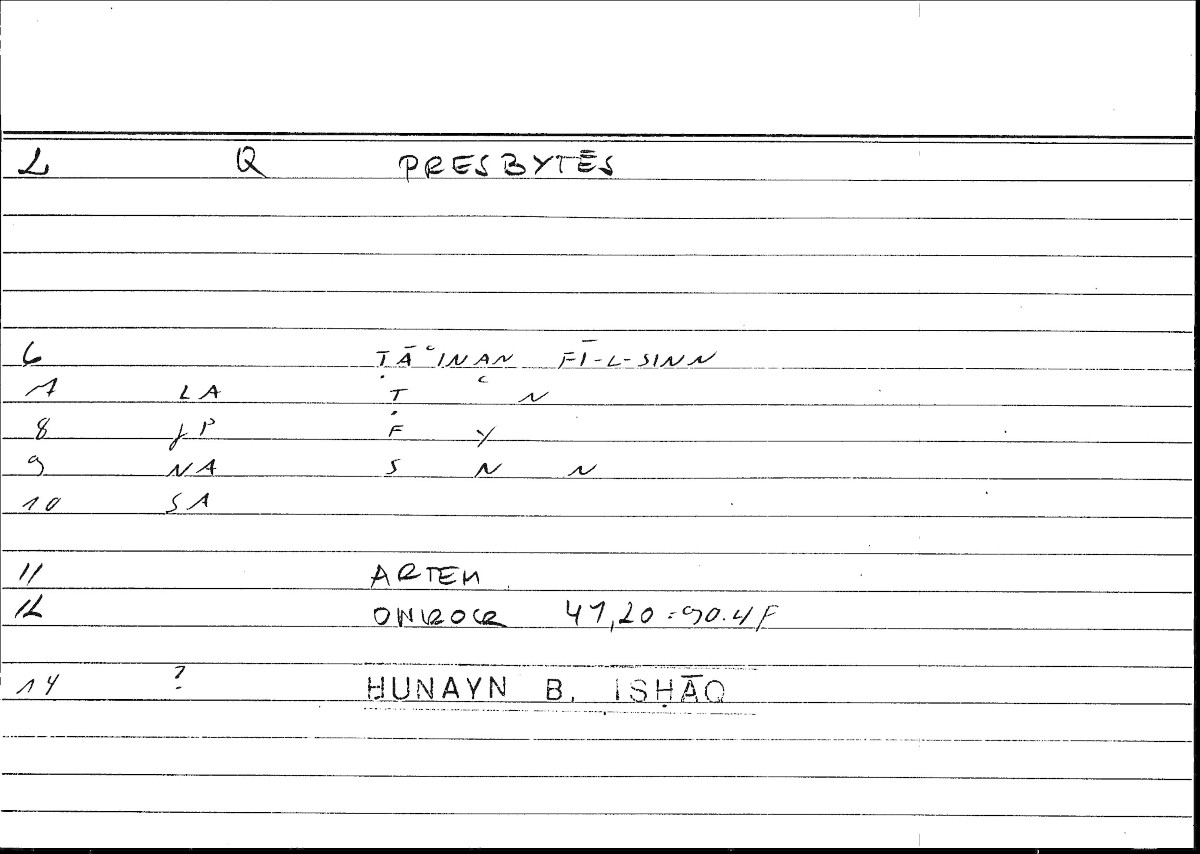 L Q PRESBYTĒS
6 ṬĀʿINAN FĪ-L-SINN
7 LA Ṭ ʿ N
8 JP F Y
9 NA S N N
10 SA
11 ARTEM
12 ONIROCR 47,20 = 90.4F
14 ? HUNAYN B. ISḤĀQ